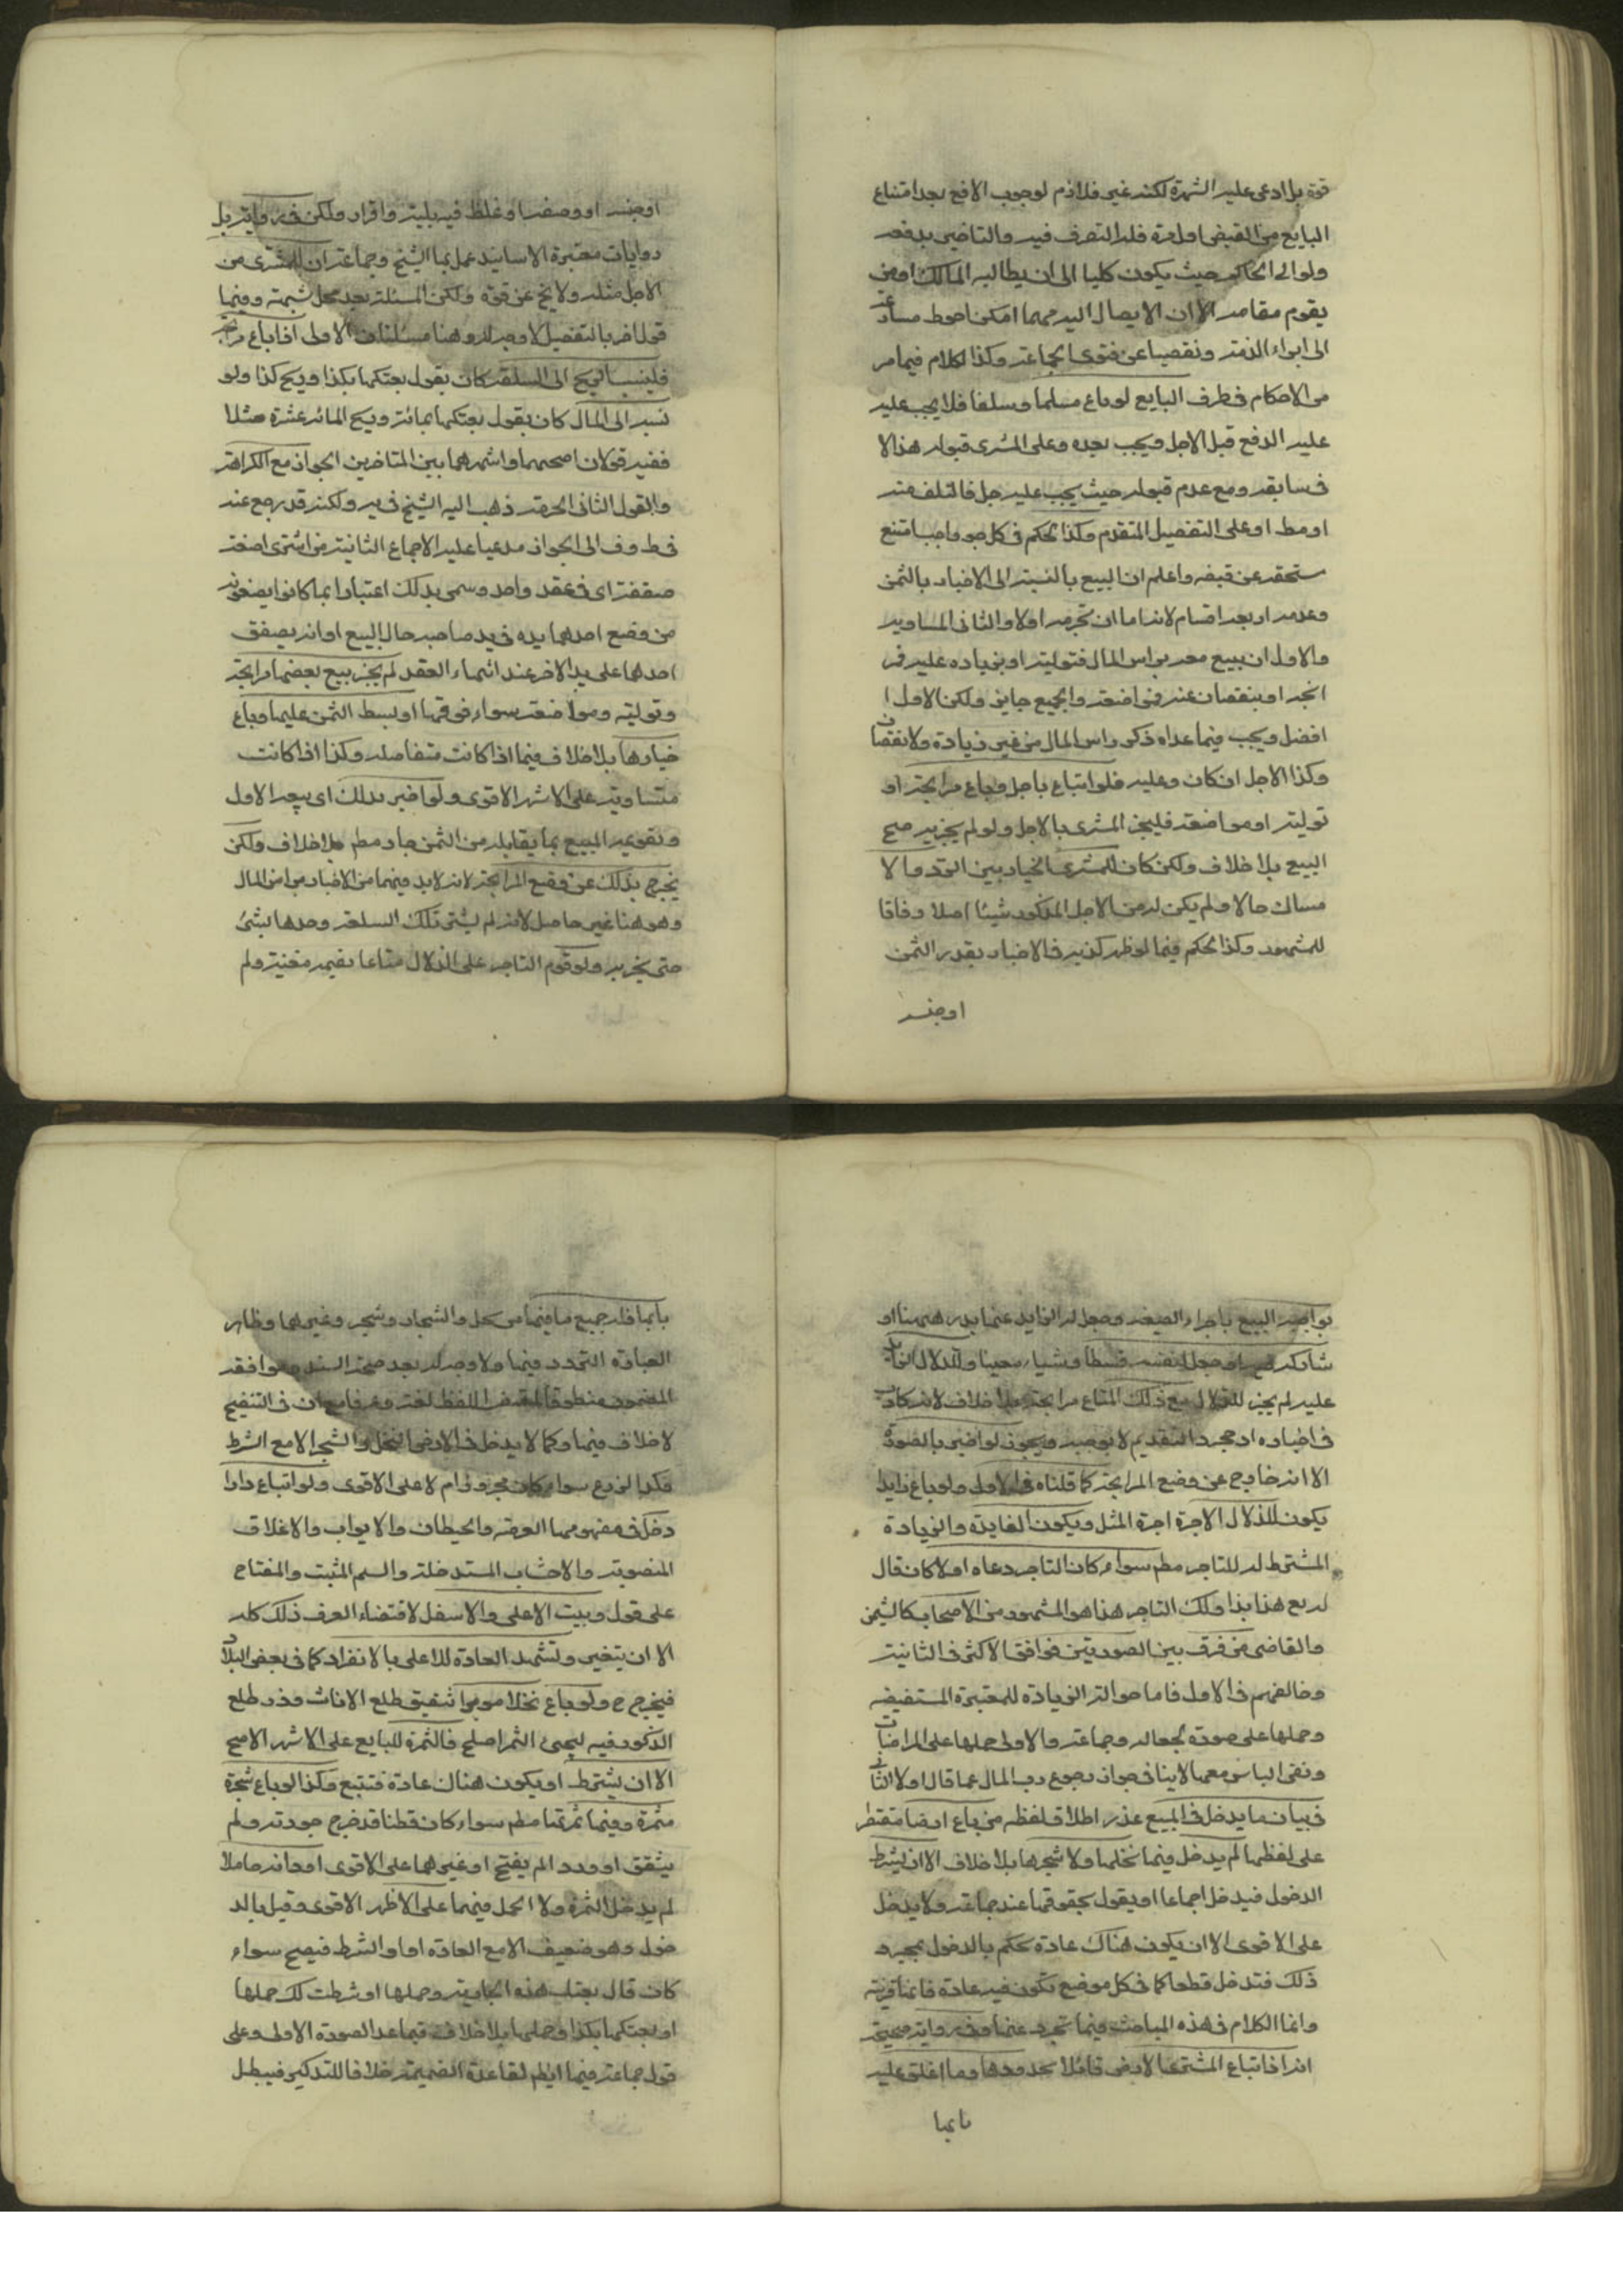 قوة بل ادعى عليه الشهرة لكنه غير فلازم لوجوب الافع بعد امتناع
البايع من القبض اول مرة فله التصرف فيه والتاخير بدفعه
ولو الى الحاكم حيث يكون كليا الى ان يطالبه المالك او من
يقوم مقامه الا ان الايصال اليه مهما امكن احوط
الى ابراء الذمة وتفصيا عن فتوى الجماعة وكذا الكلام فيما مر
من الاحكام في طرف البايع لو باع مسلما وسلفا فلا يجب عليه
عليه الدفع قبل الاجل ويجب بعده وعلى المشترى قبوله هذا الا
فى سابقه ومع عدم قبوله حيث يجب عليه حل فالتلف منه
او مط او على التفصيل المتقدم وكذا الحكم في كل حق واجب امتنع
مستحقه عن قبضه واعلم ان البيع بالنسبة الى الاخبار بالثمن
وعدمه اربعة اقسام لانه اما ان يخبر به او لا والثانى المساومة
والاول ان يبيع معه براس المال فتولية او بزيادة عليه فمر
ابحة او بنقصان عنه فمواضعة والجميع جايز ولكن الاول
افضل ويجب فيما عداه ذكر راس المال من غير زيادة ولا نقصان
وكذا الاجل ان كان وعليه فلو ابتاع باجل وباع مرابحة او
تولية او مواضعة فليخبر المشترى بالاجل ولو لم يخبر به صح
البيع بلا خلاف ولكن كان للمشترى الخيار بين الرد والا
مساك حالا ولم يكن له من الاجل المذكور شيئا اصلا وفاقا
للمشهور وكذا الحكم فيما لو ظهر كذبه في الاخبار بقدر الثمن
او جنسه
او جنسه او وصفه او غلط فيه ببينة واقرار ولكن فى رواية بل
روايات معتبرة الاسانيد عمل بها الشيخ وجماعة ان للمشترى من
الاجل مثله ولا يخ عن قوة ولكن المسئلة بعد محل شبهة وفيها
قول اخر بالتفصيل لا وجه له وهنا مسئلتان الاولى اذا باع مرابحة
فلينسب الربح الى السلعة كان يقول بعتكها بكذا وربح كذا ولو
نسبه الى المال كان يقول بعتكها بمائة وربح المائة عشرة مثلا
ففيه قولان اصحهما واشهرهما بين المتاخرين الجواز مع الكراهة
والقول الثانى الحرمة ذهب اليه الشيخ فى يه ولكنه قد رجع عنه
فى ط وف الى الجواز مدعيا عليه الاجماع الثانية من اشترى امتعة
صفقة اى فى عقد واحد وسمى بذلك اعتبارا بما كانوا يصنعونه
من وضع احدهما يده فى يد صاحبه حال البيع او انه يصفق
احدهما على يد الاخر عند انتهاء العقد لم يجز بيع بعضها مرابحة
وتولية ومواضعة سواء قومها او بسط الثمن عليها وباع
خيارها بلا خلاف فيما اذا كانت متفاضلة وكذا اذا كانت
متساوية على الاشهر الاقوى ولو اخبر بذلك اى بيعه الاول
وتقويمه المبيع بما يقابله من الثمن جاز مطم بلا خلاف ولكن
يخرج بذلك عن وضع المرابحة لانه لابد فيهما من الاخبار براس المال
وهو هنا غير حاصل لانه لم يشتر تلك السلعة وحدها بشئ
حتى يخبر به ولو قوم التاجر على الدلال متاعا بقيمة معينة ولم
يواجبه البيع باجراء الصيغة وجعل له الزايد عنها بدرهم مثلا او
شاركه فيه او جعل لنفسه قسطا وشيئا معينا وللدلال الزايد
عليه لم يجز للدلال بيع ذلك المتاع مرابحة بلا خلاف لانه كاذب
فى اخباره اذ مجرد التقديم لا يوجبه ويجوز لو اخبر بالصورة
الا انه خارج عن وضع المرابحة كما قلناه فى الاول ولو باع زايدا
يكون للدلال الاجرة اجرة المثل ويكون الفايدة والزيادة
المشترط له للتاجر مطم سواء كان التاجر دعاه او لا كان قال
له بع هذا بذا ولك التاجر هذا هو المشهور من الاصحاب كالشيخين
والقاضى من فرق بين الصورتين فوافق الاكثر فى الثانية
وخالفهم فى الاول فاما حوالة الزيادة للمعتبرة المستفيضة
وحملها على صورة الجعالة وجماعة والاولى حملها على المراضات
ونفى الباس معها لا ينافى جواز رجوع رب المال عما قال اولا الثانى
فى بيان ما يدخل فى المبيع عند اطلاق لفظه من باع ارضا مقتصرا
على لفظها لم يدخل فيها نخلها ولا شجرها بلا خلاف الا ان يشترط
الدخول فيدخل اجماعا او يقول بحقوقها عند جماعة ولا يدخل
على الاقوى الا ان يكون هناك عادة تحكم بالدخول بمجرد
ذلك فتدخل قطعا كما فى كل موضع تكون فيه عادة فانها قرينة
وانما الكلام فى هذه المباحث فيما تجرد عنها وفى رواية صحيحة
انه اذا ابتاع المشترى الارض قائلا بحدودها وما اغلق عليه
بابها
بابها فله جميع ما فيها من نخل واشجار وشجر وغيرهما وظاهر
العبادة التردد فيها ولا وجه له بعد صحة السند وموافقة
المضمون منطوقا لمقتضى اللفظ لغة وعرفا مع ان فى التنقيح
لا خلاف فيها وكما لا يدخل فى الارض النخل والشجر الا مع الشرط
فكذا الزرع سواء كان مجزوزا ام لا على الاقوى ولو ابتاع دارا
دخل فى مفهومها العرصة والحيطان والابواب والاغلاق
المنصوبة والاخشاب المستدخلة والسلم المثبت والمفتاح
على قول وبيت الاعلى والاسفل لاقتضاء العرف ذلك كله
الا ان يتغير وتشهد العادة للاعلى بالانفراد كما فى بعض البلاد
فيخرج ح ولو باع نخلا موبرا بتشقيق طلع الاناث وذر طلع
الذكور فيه ليجئ الثمر اصلح فالثمرة للبايع على الاشهر الاصح
الا ان يشترط او يكون هناك عادة فتتبع وكذا لو باع شجرة
مثمرة وفيها ثمرتها مطم سواء كان قطنا قد خرج جوزته ولم
يتشقق او ورد الم يفتح او غيرهما على الاقوى او دابة حاملا
لم يدخل الثمرة ولا الحمل فيهما على الاظهر الاقوى وقيل بالد
خول وهو ضعيف الا مع العادة او الشرط فيصح سواء
كان قال بعتك هذه الجارية وحملها او شرطت لك حملها
او بعتكها بكذا وحملها بلا خلاف فيما عدا الصورة الاولى وعلى
قول جماعة فيها ايضم لقاعدة الضميمة خلافا للتذكير فيبطل